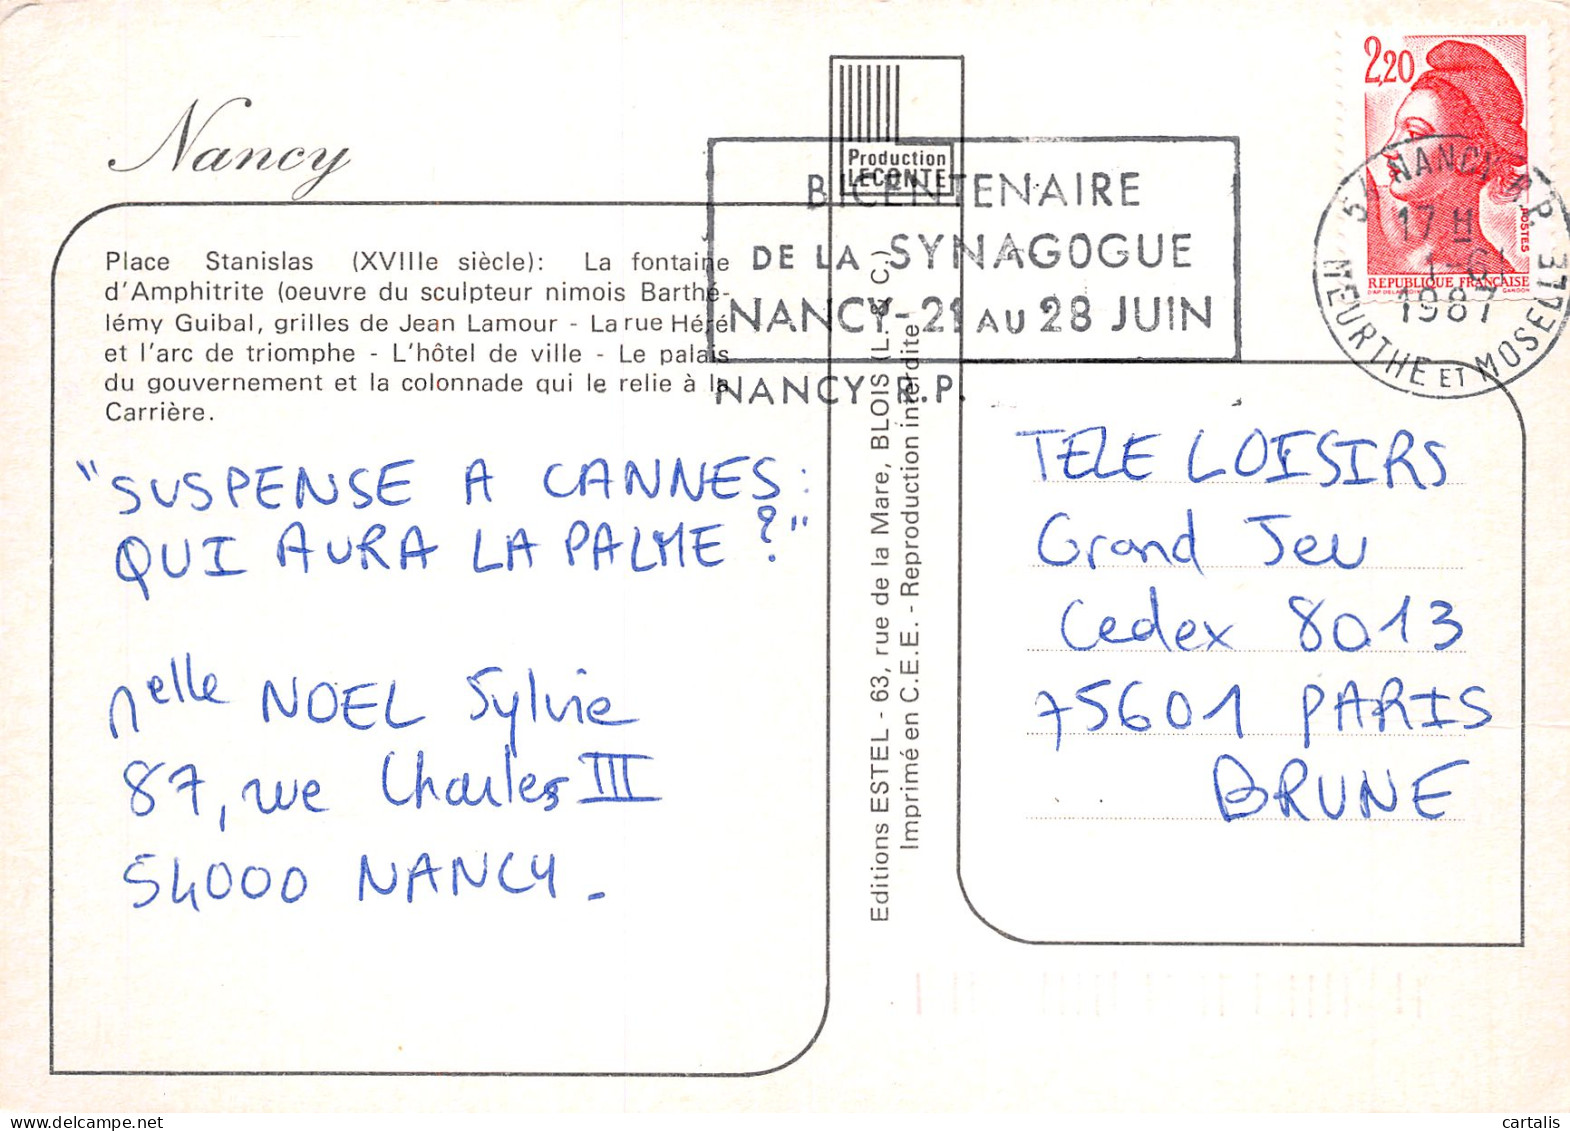 Nancy
Production
LECONTE
BICENTENAIRE
DE LA SYNAGOGUE
NANCY-21 AU 28 JUIN
NANCY R.P.
2,20
POSTES
REPUBLIQUE FRANÇAISE
54 NANCY R.P.
17 H
1987
MEURTHE ET MOSELLE
Place Stanislas (XVIIIe siècle): La fontaine
d'Amphitrite (oeuvre du sculpteur nimois Barthé-
lémy Guibal, grilles de Jean Lamour - La rue Héré
et l'arc de triomphe - L'hôtel de ville - Le palais
du gouvernement et la colonnade qui le relie à la
Carrière.
"SUSPENSE A CANNES:
QUI AURA LA PALME?"
NOEL Sylvie
87, rue Charles III
54000 NANCY.
Editions ESTEL - 63, rue de la Mare, BLOIS (L. & C.)
Imprimé en C.E.E. - Reproduction interdite
TELE LOISIRS
Grand Jeu
Cedex 8013
75601 PARIS
BRUNE
cartalis